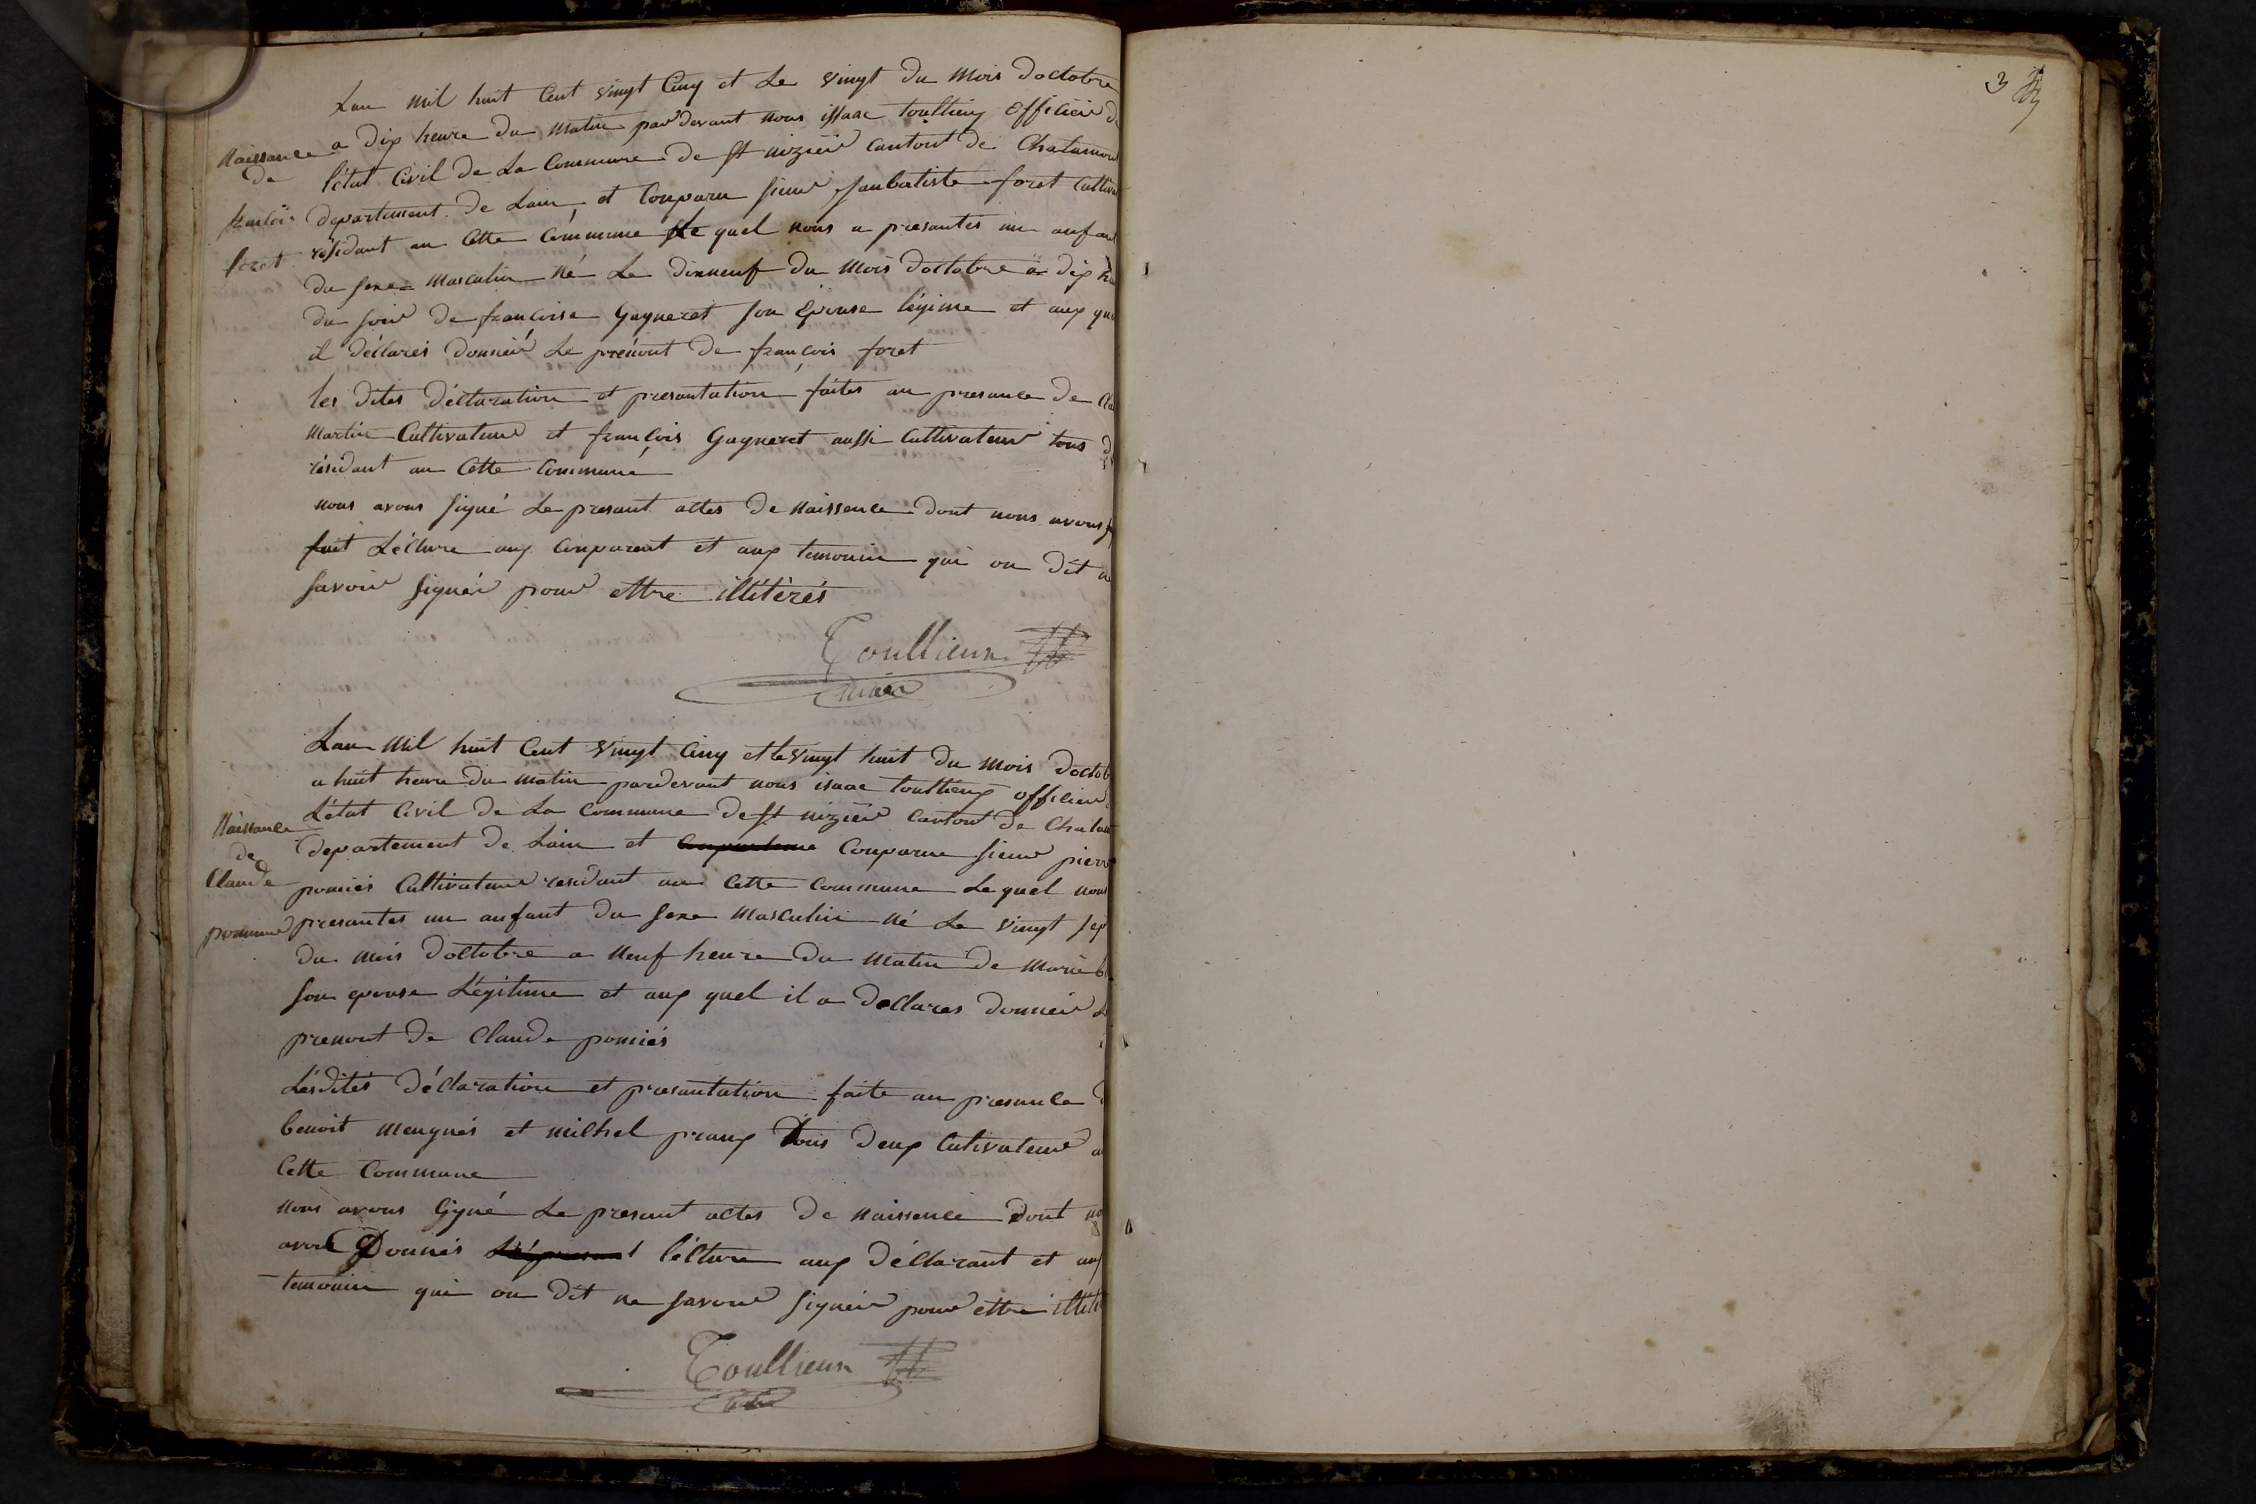 Lan mil huit Cent vingt Cinq et Le vingt du Mois doctobre
a dix heure du matin par devant nous issaac toullieux officier de
létat Civil de La Commune de St nizier Cantont de Chalamon
departement de Lain et Conparu sieur janbatiste foret Cultiva
résidant an Cette Commune Le quel nous a presantés un anfant
du sexe Masculin né Le dixneuf du Mois doctobre a dix heu
du soir de francoise Gagneret son Epouse légime et aux quel
il déclarés donnér Le prénont de francois foret
Naissance
de
francois
foret
les dites déclaration et presantation faites an presance de Cla
Martin Cultivateur et francois Gagneret aussi Cultivateur tous d
résidant an Cette Commune
nous avons signé Le presant actes de Naissence dont nous avons
fait Lécture aux Conparant et aux temonin qui on dit n
savoir signér pour ettre illitérés
Toullieux
Maire
Lan Mil huit Cent vingt Cinq et le vingt huit du Mois doctob
a huit heure du matin pardevant nous isaac toullieux officier
Létat Civil de La Commune de St nizier Cantont de Chalam
departement de Lain et Conparue sieur pierre
pomiés Cultivateur residant an Cette Commune Le quel nous
presantés un anfant du sexe Masculin né Le vingt sep
du mois doctobre a Neuf heure du Matin de Marie
son epouse Légitime et aux quel il a declares donnér L
prenont de Claude pomiés
Naissance
de
Claude
pomier
Lésdités déclaration et presantation faite an presance d
benoit meugnés et michel preaux tous deux Cultivateur a
Cette Commune
nous avons Signé Le presant actes de naissence dont no
avons Donnés lécture aux déclarant et aux
temonin qui on dit ne savoir signér pour ettre illité
Toullieux
3